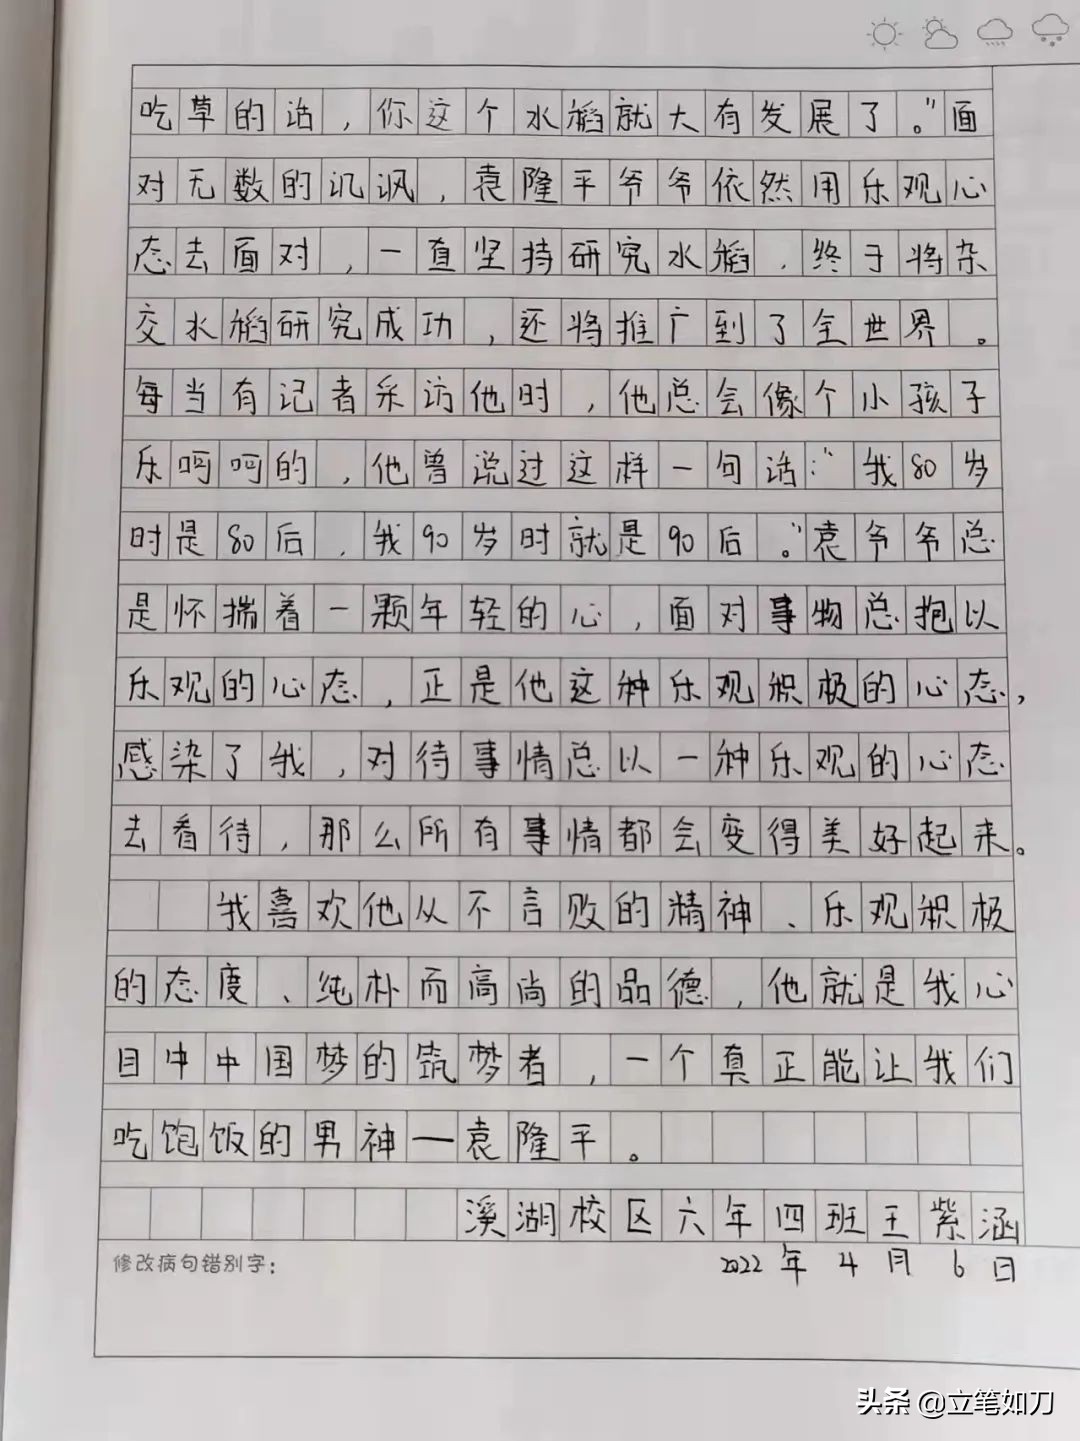 吃草的话，你这个水稻就大有发展了。”面
对无数的讥讽，袁隆平爷爷依然用乐观心
态去面对，一直坚持研究水稻，终于将杂
交水稻研究成功，还将推广到了全世界。
每当有记者采访他时，他总会像个小孩子
乐呵呵的，他曾说过这样一句话：“我80岁
时是80后，我90岁时就是90后。”袁爷爷总
是怀揣着一颗年轻的心，面对事物总抱以
乐观的心态，正是他这种乐观积极的心态，
感染了我，对待事情总以一种乐观的心态
去看待，那么所有事情都会变得美好起来。
我喜欢他从不言败的精神、乐观积极
的态度、纯朴而高尚的品德，他就是我心
目中中国梦的筑梦者，一个真正能让我们
吃饱饭的男神—袁隆平。
溪湖校区六年四班王紫涵
修改病句错别字：
2022年4月6日
头条 @立笔如刀